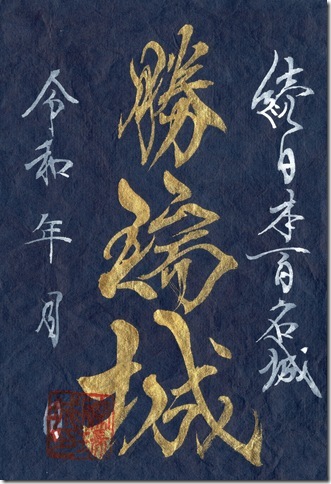 続日本百名城
勝瑞城
令和 年 月